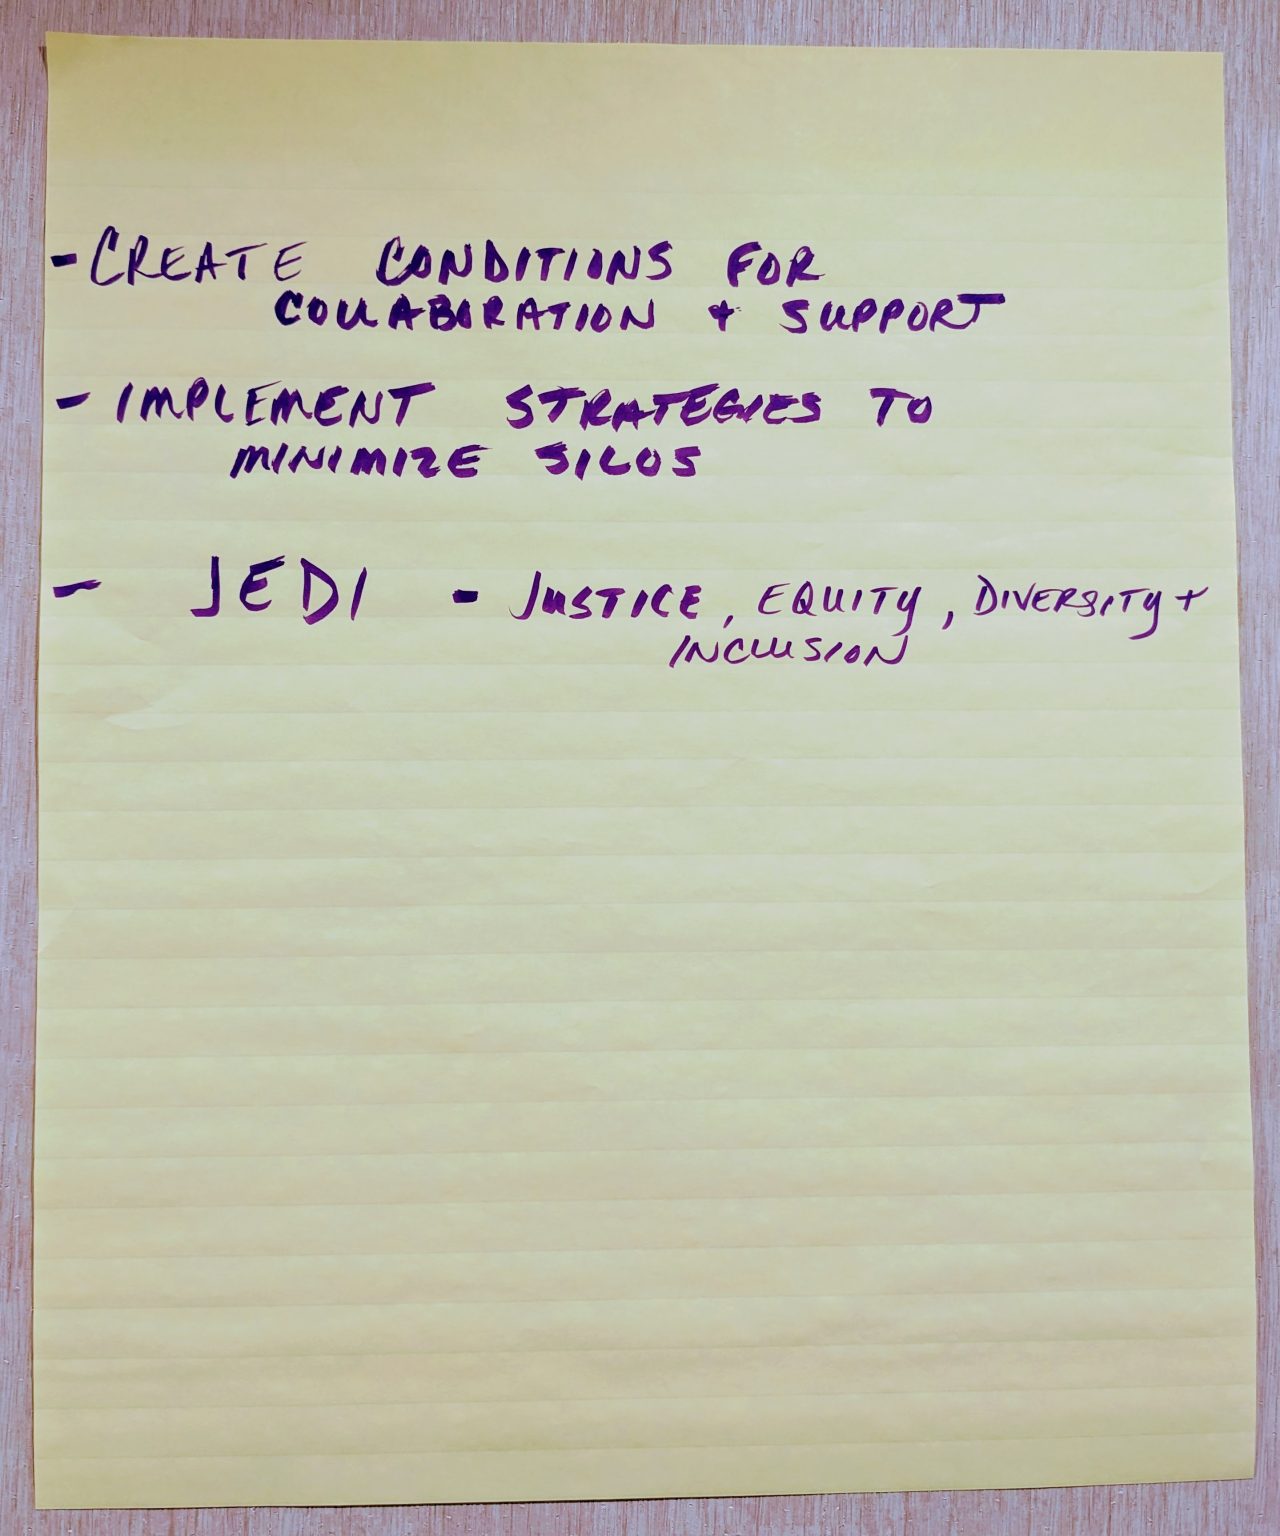 - CREATE CONDITIONS FOR
COLLABORATION + SUPPORT
- IMPLEMENT STRATEGIES TO
MINIMIZE SILOS
- JEDI - JUSTICE, EQUITY, DIVERSITY +
INCLUSION